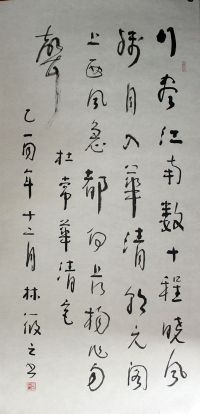 行盡江南數十程曉風
殘月入華清朝元閣
上西風急都向長楊作雨
聲
杜常華清宮
乙酉年十二月林筱之書